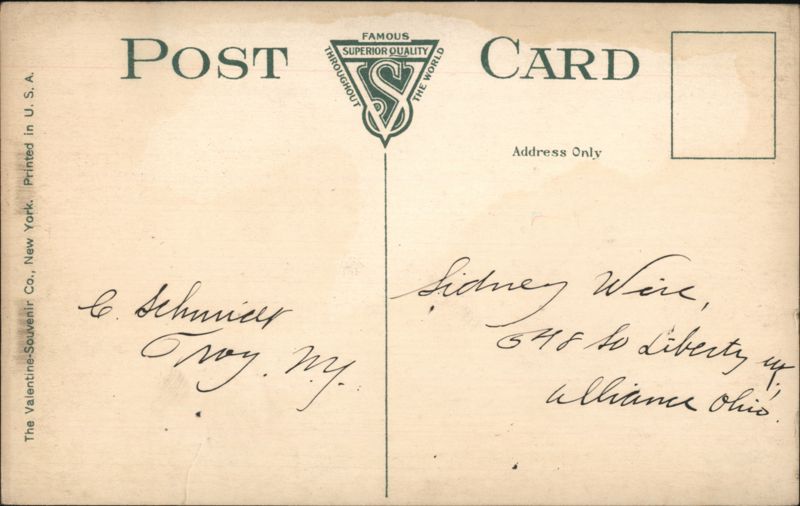 POST CARD
FAMOUS
SUPERIOR QUALITY
THROUGHOUT
THE WORLD
VS
Address Only
The Valentine-Souvenir Co., New York. Printed in U. S. A.
C. Schmidt
Troy. N.Y.
Sidney Wire,
648 So Liberty
Alliance Ohio.